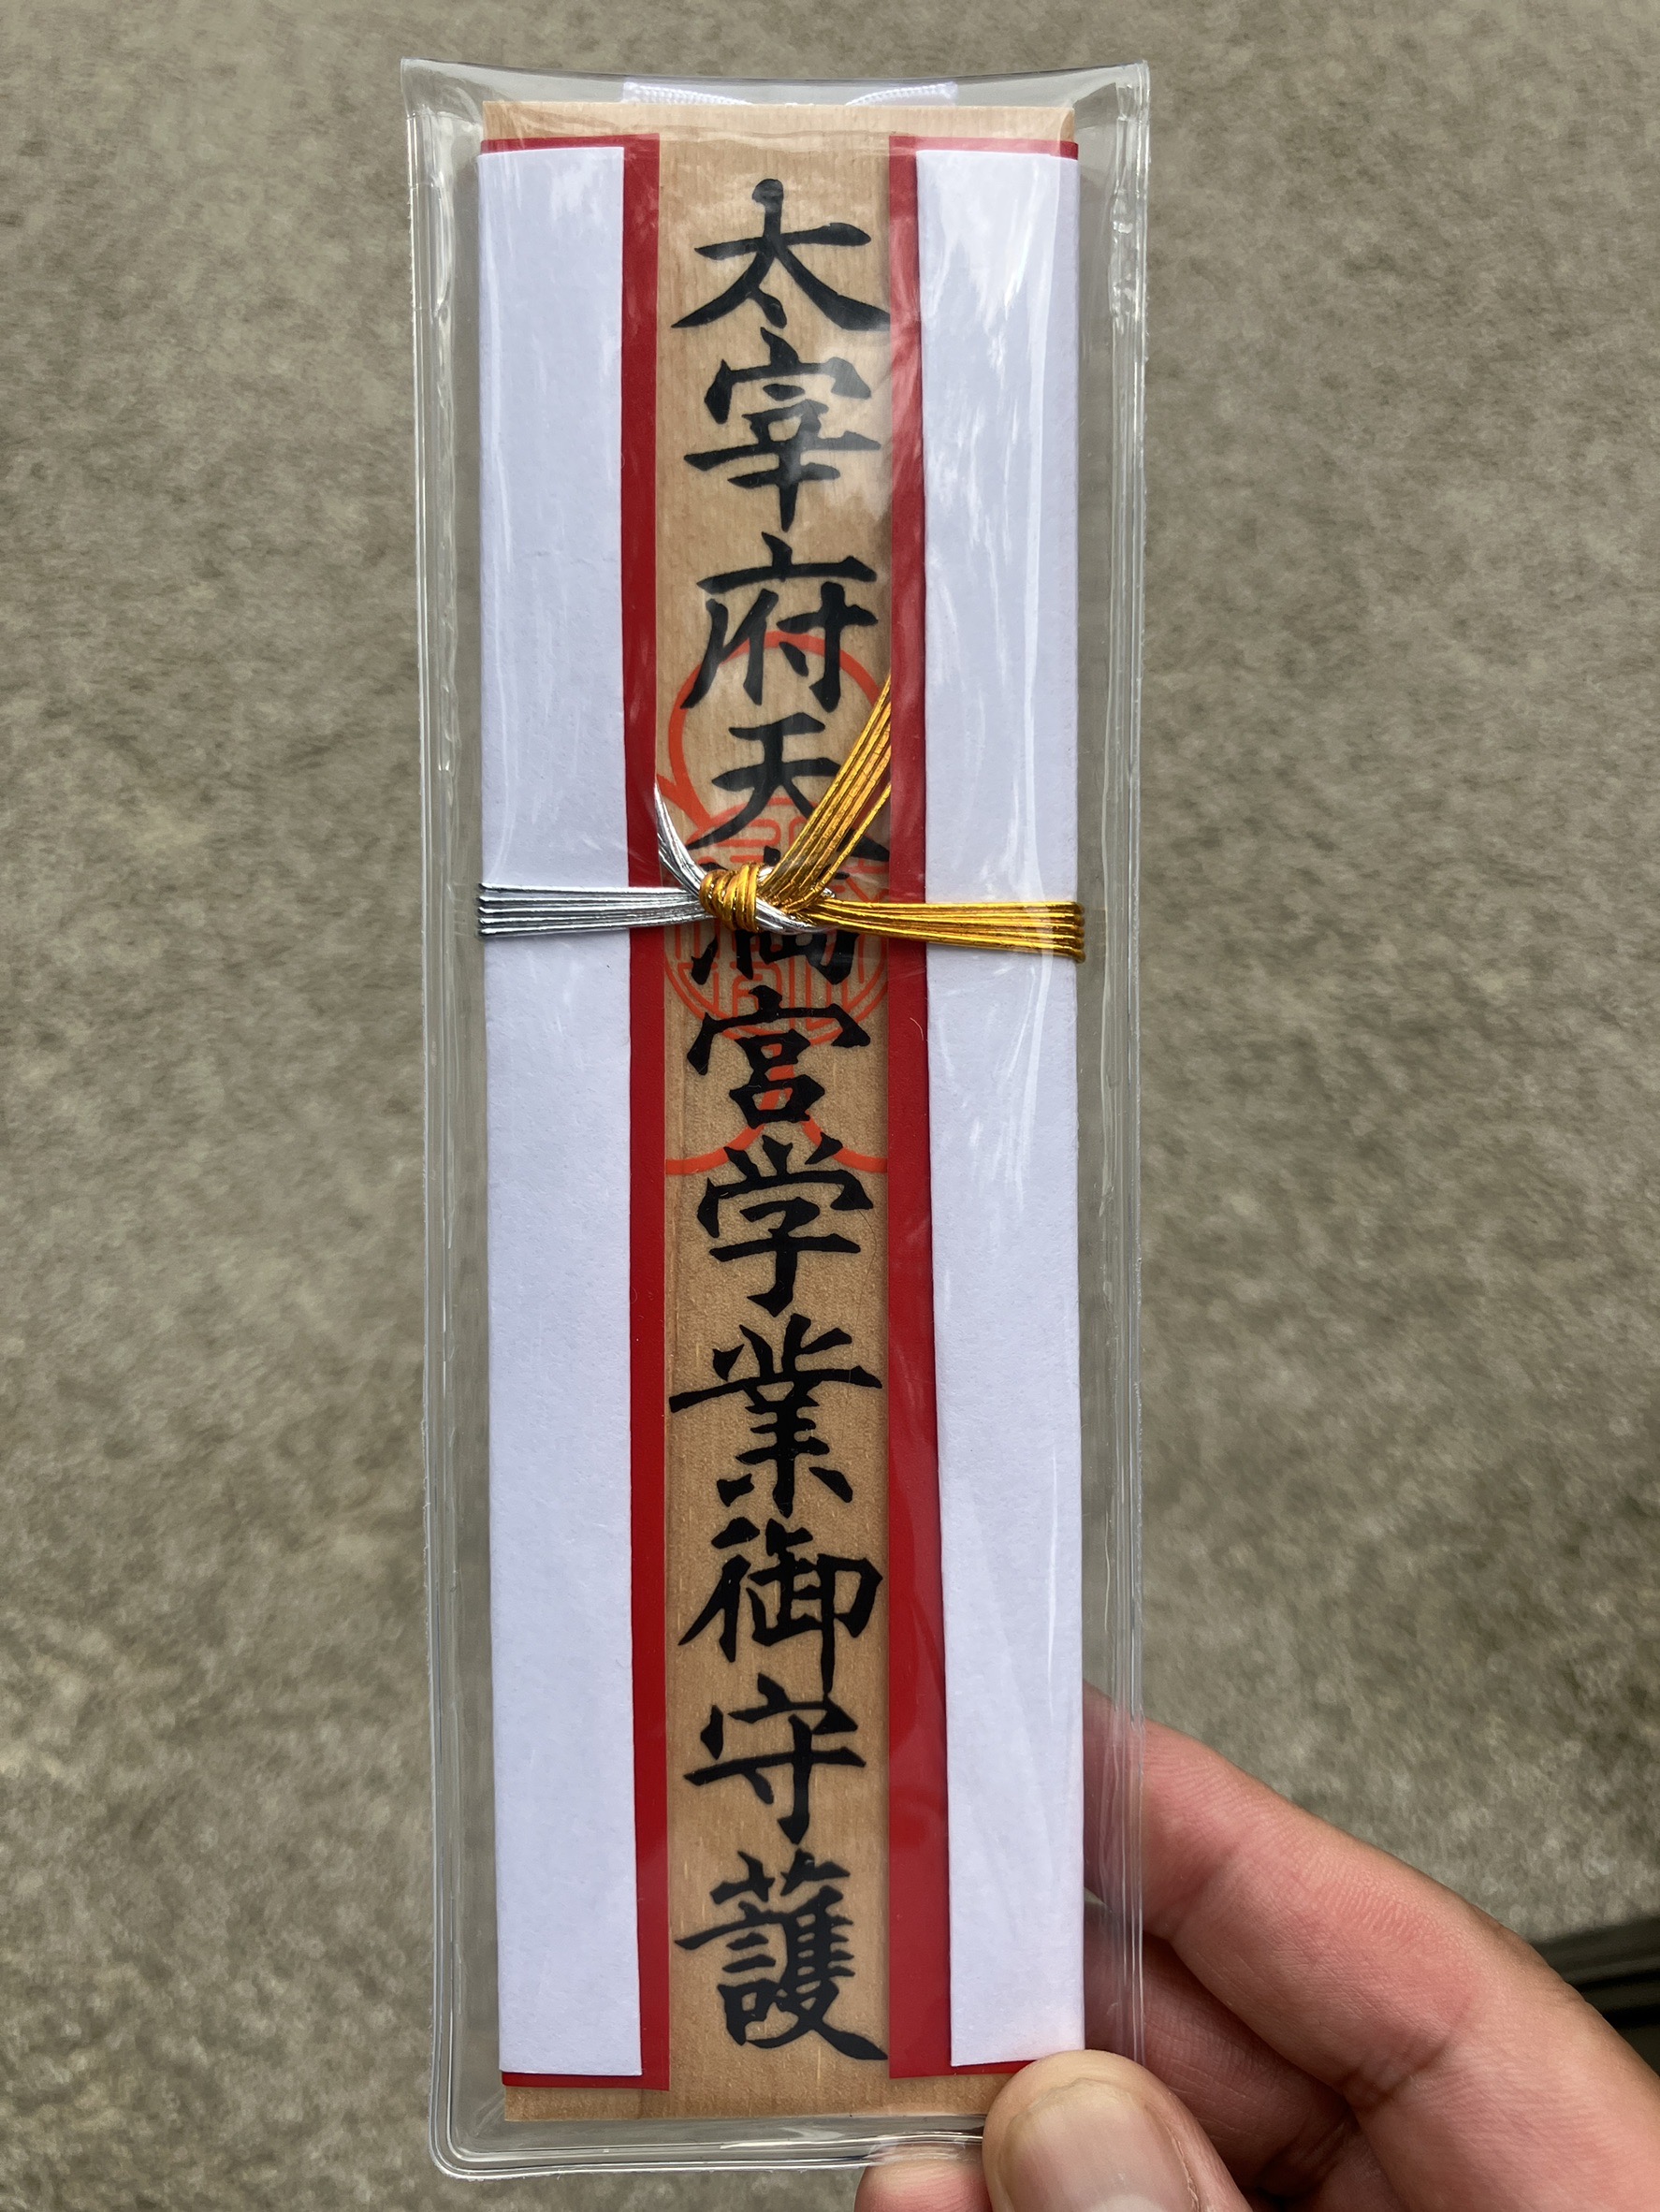 太宰府天満宮学業御守護